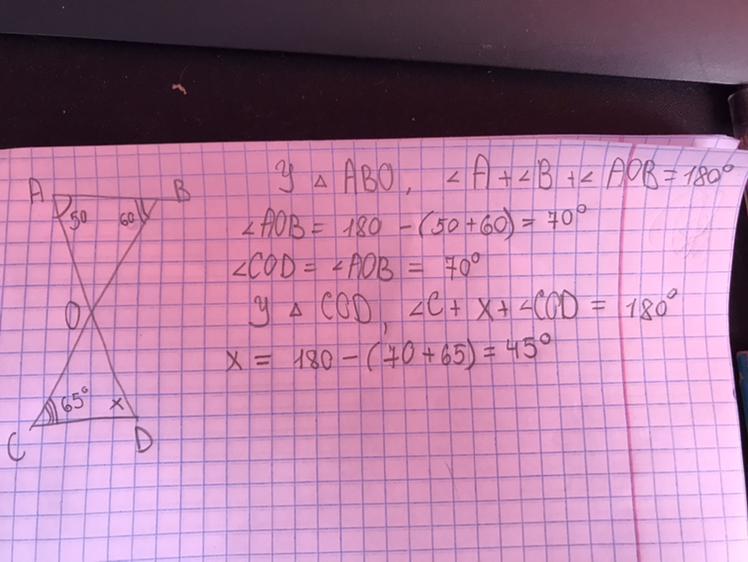 A B
50 60
O
65° x
C D
У △ ABO, ∠A + ∠B + ∠AOB = 180°
∠AOB = 180 - (50 + 60) = 70°
∠COD = ∠AOB = 70°
У △ COD, ∠C + x + ∠COD = 180°
x = 180 - (70 + 65) = 45°